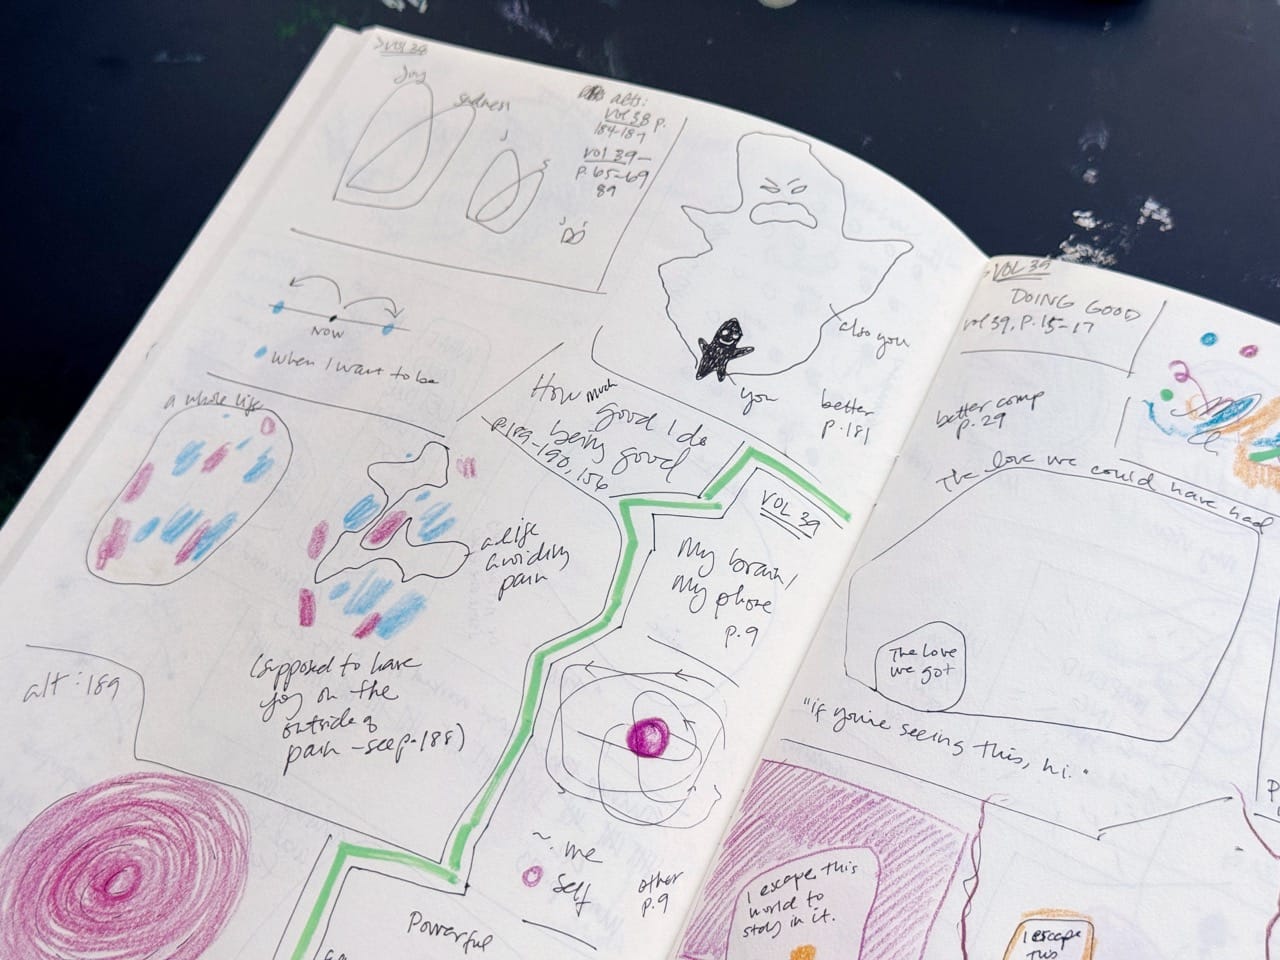 >VOL 39
Joy
sadness
alts:
Vol 38 p.
184-187
Vol 39-
p.65-69
89
J
S
J
S
NOW
When I want to be
also you
you
better
p.181
How much
good I do
being good
p.189-190, 156
a whole life
a life
avoiding
pain
(supposed to have
joy on the
outside of
pain - see p.188)
alt: 189
VOL 39
My brain/
My phone
p.9
~ me
self
other
p.9
Powerful
VOL 39
DOING GOOD
vol 39, P.15-17
better comp
p.29
The love we could have had
The love
we got
"if you're seeing this, hi."
I escape this
world to
stay in it.
I escape
this
P